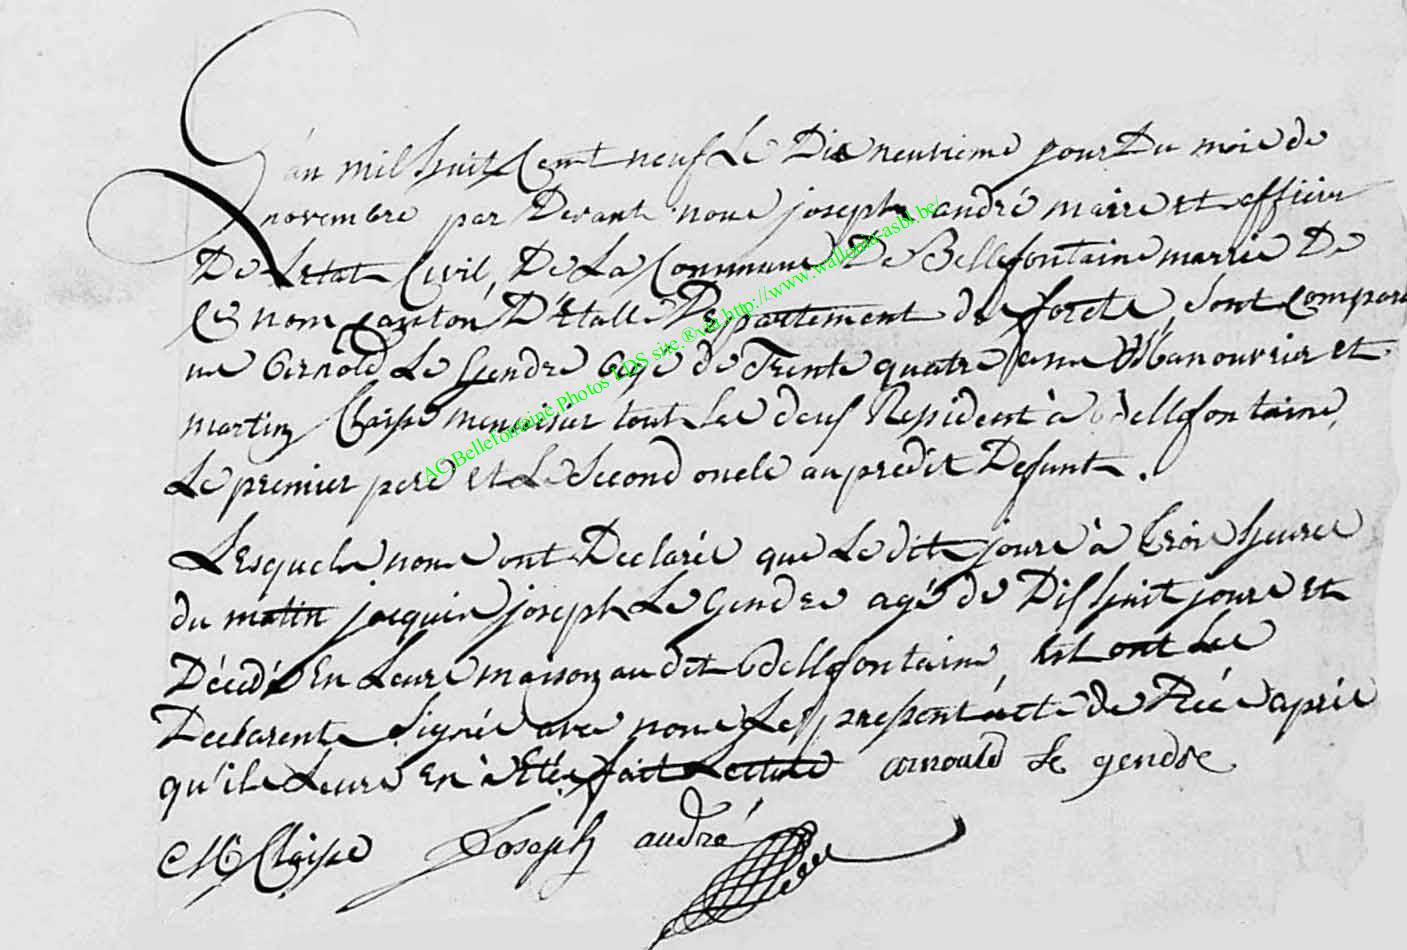 L'an mil huit Cent neuf Le Dix neuvieme jour Du mois de
novembre par Devant nous joseph andré maire et officier
De Letat Civil, De La Commune De Bellefontaine marrie De
Ce nom Canton D'Etalle Département de forets, sont compar
us Ernold Le Gendre agé de Trente quatre ans Manouvrier et
martin Claisse menuisier tout Les deux Resident à Bellefontaine,
Le premier pere et Le Second oncle au predit Defunt.
Lesquels nous ont Declarés que Ledit jours à trois heures
du matin jacques joseph Le Gendre agé de Dix huit jours Et
Décedé En Leurs maison au dit Bellefontaine, Est ont Les
Declarents Signés avec nous Le present acte de Décé après
qu'ils Leurs En à Etés fait Lecture arnould le gendre
M Claisse Joseph andré
AC Bellefontaine Photos EDS site ® via http://www.wallonia-asbl.be/